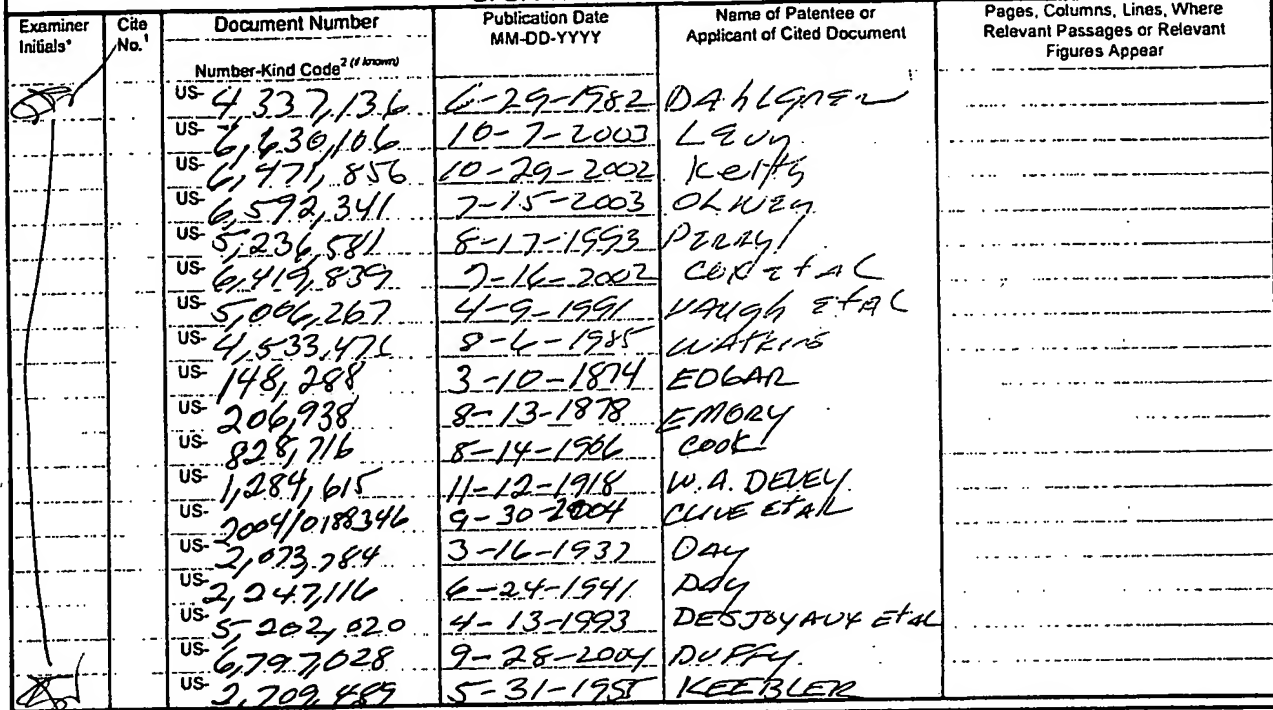 Examiner Initials* Cite No.¹ Document Number Publication Date MM-DD-YYYY Name of Patentee or Applicant of Cited Document Pages, Columns, Lines, Where Relevant Passages or Relevant Figures Appear
Number-Kind Code² (if known)
US- 4,337,136 6-29-1982 DAhlgren
US- 6,630,106 10-7-2003 Levy
US- 6,471,856 10-29-2002 Keith
US- 6,592,341 7-15-2003 OLWEY
US- 5,236,581 8-17-1993 Perry
US- 6,419,839 7-16-2002 COX et AL
US- 5,006,267 4-9-1991 VAUgh et AL
US- 4,533,476 8-6-1985 WATKINS
US- 148,288 3-10-1874 EDGAR
US- 206,938 8-13-1878 EMORY
US- 828,716 8-14-1906 COOK
US- 1,284,615 11-12-1918 W.A. DEVEY
US- 2004/0188346 9-30-2004 CLIVE Et AL
US- 2,073,784 3-16-1937 DAy
US- 2,247,116 6-24-1941 DAy
US- 5,202,020 4-13-1993 DESJOYAUX Et al
US- 6,797,028 9-28-2004 DUFFY
US- 2,709,489 5-31-1955 KEEBLER